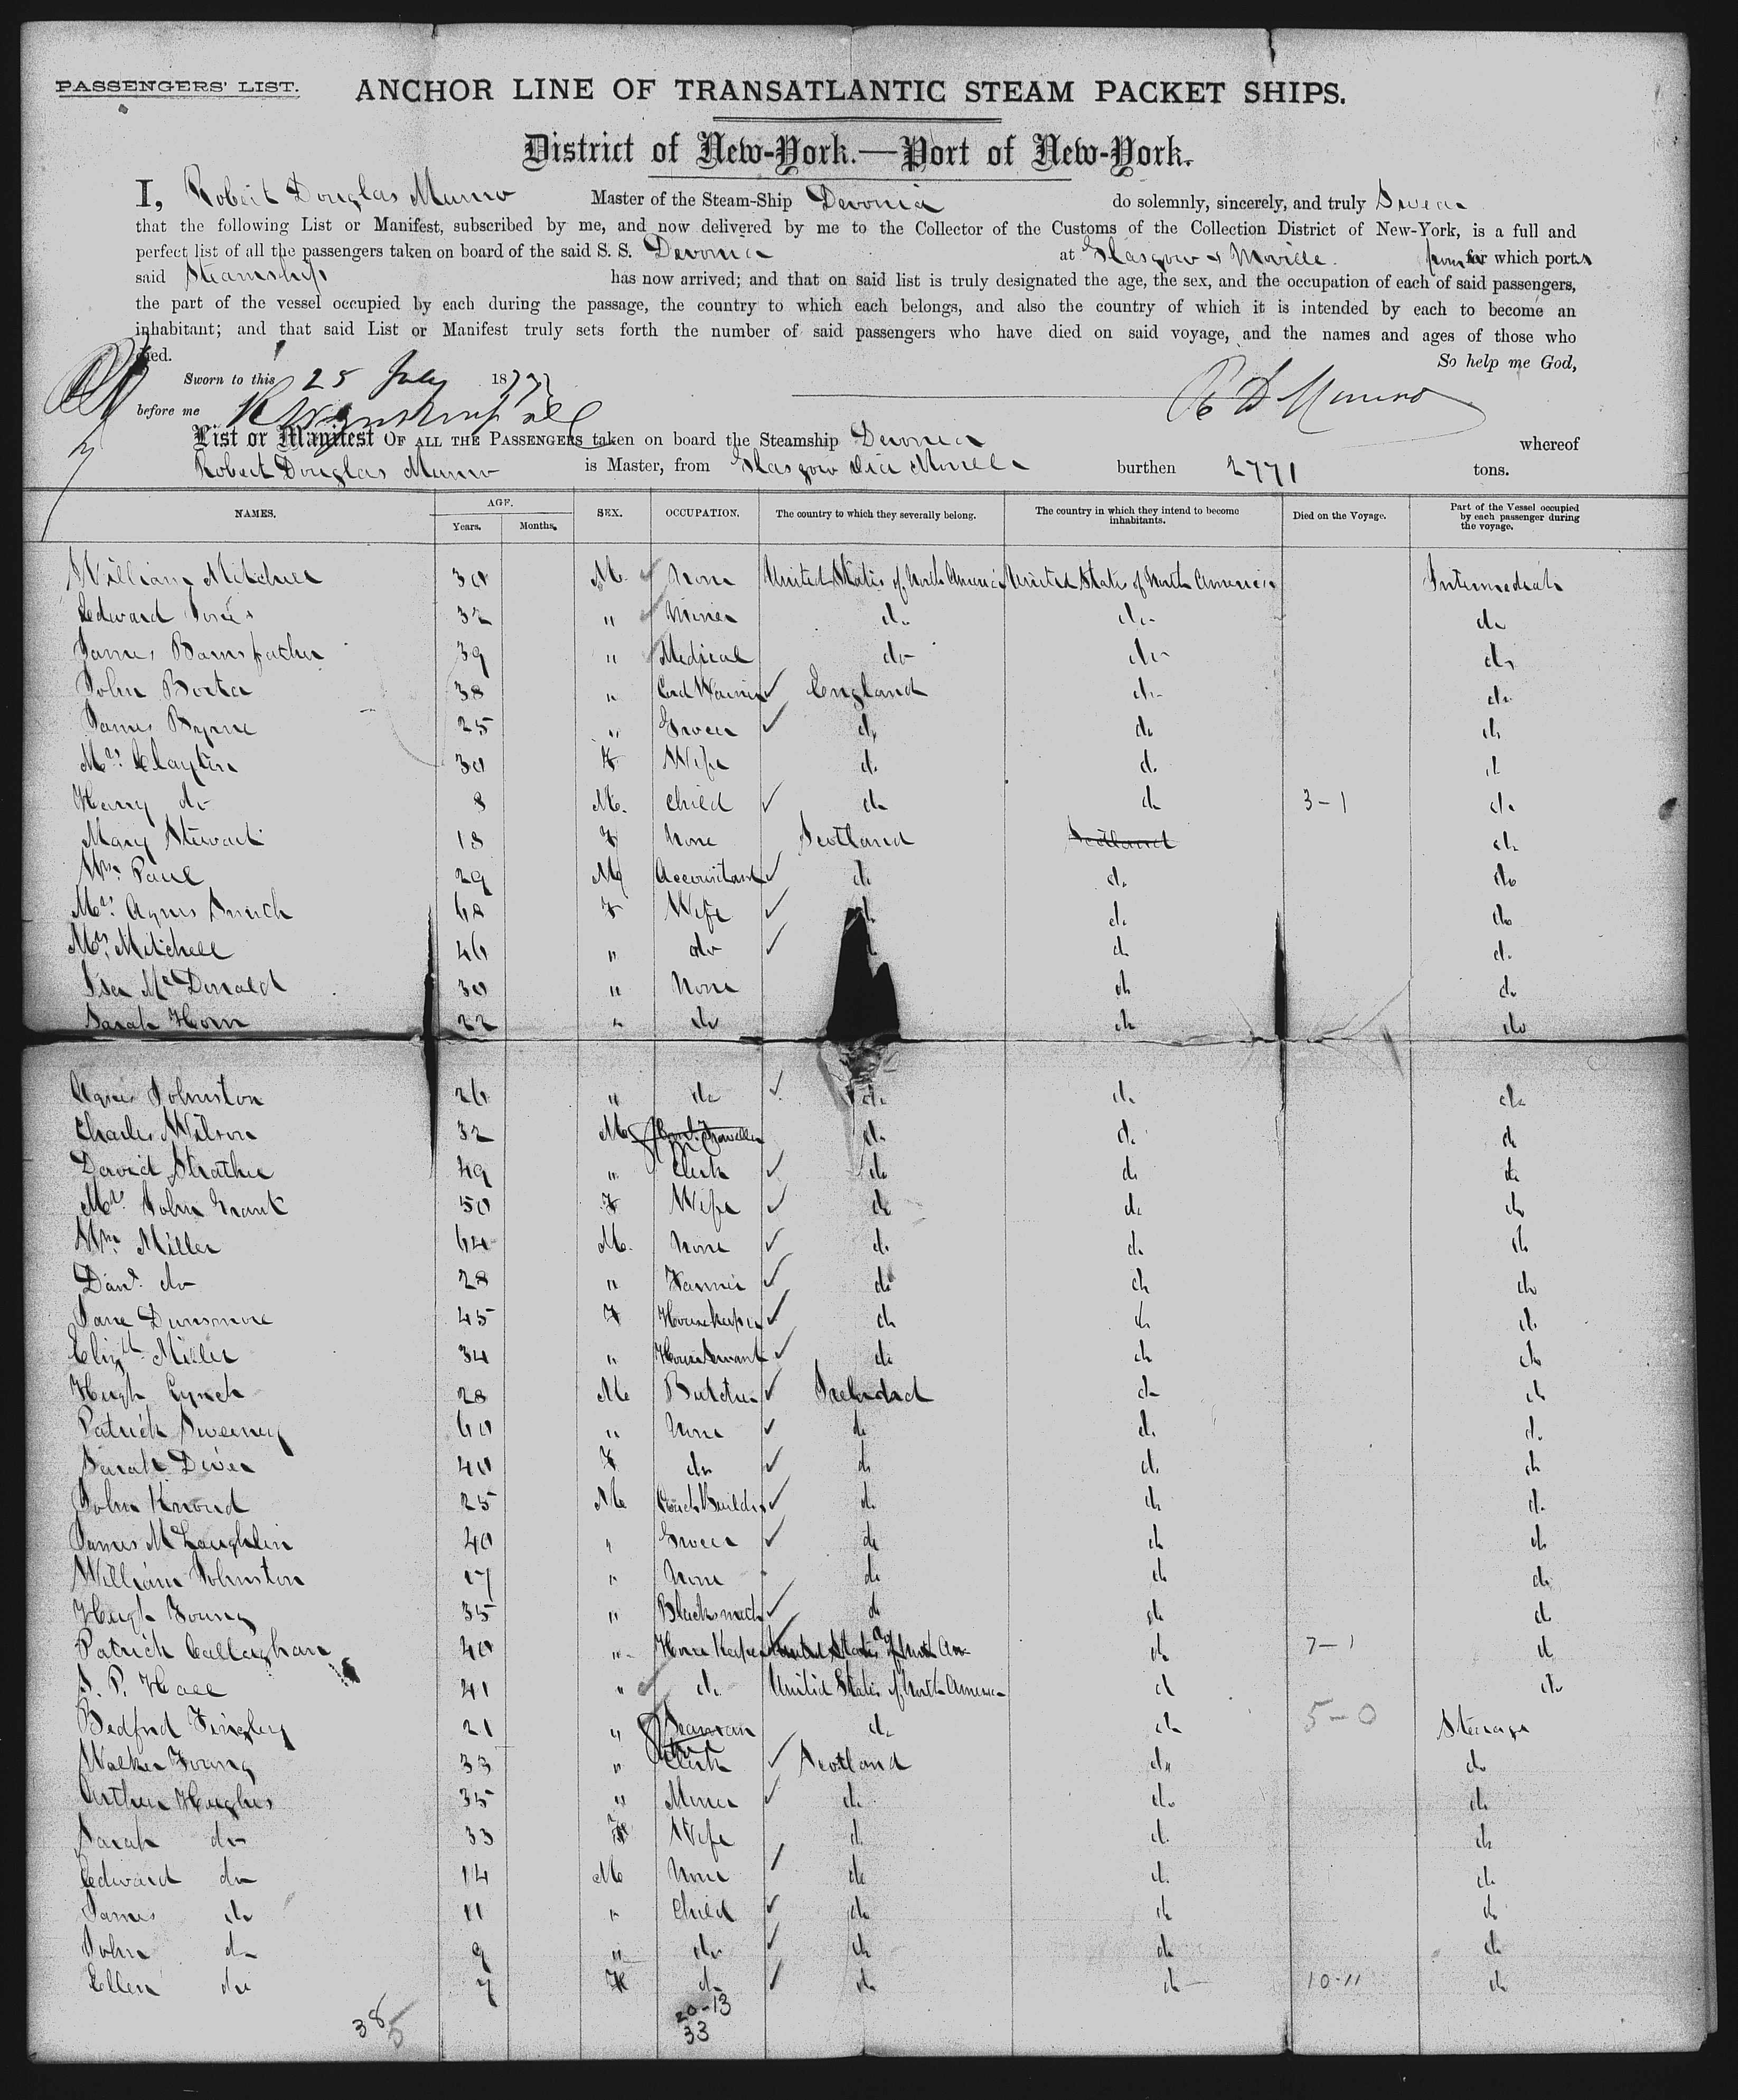 PASSENGERS' LIST. ANCHOR LINE OF TRANSATLANTIC STEAM PACKET SHIPS.
District of New-York.—Port of New-York.
I, Robert Douglas Munro Master of the Steam-Ship Devonia do solemnly, sincerely, and truly Swear
that the following List or Manifest, subscribed by me, and now delivered by me to the Collector of the Customs of the Collection District of New-York, is a full and
perfect list of all the passengers taken on board of the said S. S. Devonia at Glasgow & Moville. from which ports
said Steamship has now arrived; and that on said list is truly designated the age, the sex, and the occupation of each of said passengers,
the part of the vessel occupied by each during the passage, the country to which each belongs, and also the country of which it is intended by each to become an
inhabitant; and that said List or Manifest truly sets forth the number of said passengers who have died on said voyage, and the names and ages of those who
died. So help me God,
Sworn to this 25 July 1877
before me R D Munro
List or Manifest OF ALL THE PASSENGERS taken on board the Steamship Devonia whereof
Robert Douglas Munro is Master, from Glasgow via Moville burthen 2771 tons.
NAMES. AGE. Years. Months. SEX. OCCUPATION. The country to which they severally belong. The country in which they intend to become inhabitants. Died on the Voyage. Part of the Vessel occupied by each passenger during the voyage.
William Mitchell 30 M. None United States of North America United States of North America Intermediate
Edward Jones 32 " Miner do do do
James Bairnsfather 39 " Medical do do do
John Porter 38 " England do do
James Byrne 25 " Grocer do do do
Mrs. Clayton 30 F Wife do do do
Harry do 8 M. Child do do 3-1 do
Mary Stewart 18 F None Scotland Scotland do
Wm. Paul 29 M Accountant do do do
Mrs. Agnes Smith 60 F Wife do do do
Mrs. Mitchell 46 " do do do
Isa McDonald 30 " None do do
Sarah Horn 22 " do do do
Agnes Johnston 26 " do do do do
Charles Wilson 32 M Coml. Traveller do do do
David Strathie 49 " Clerk do do do
Mrs. John Grant 50 F Wife do do do
Wm. Miller 64 M. None do do do
Davd. do 28 " Farmer do do do
Jane Dunsmore 45 F Housekeeper do do do
Elizth. Miller 34 " House Servant do do do
Hugh Lynch 28 M Butcher Ireland do do
Patrick Sweeney 60 " None do do do
Sarah Diver 40 F do do do do
John Kinoud 25 M Coach Builder do do do
James McLaughlin 40 " Grocer do do do
William Johnston 17 " None do do do
Hugh Young 35 " Blacksmith do do do
Patrick Callaghan 40 " House Keeper United States of North Am do 7-1 do
J. P. Hall 41 " do United States of North America do do
Bedford Tingley 21 " Seaman do do 5-0 Steerage
Walker Young 33 " Clerk Scotland do do
Arthur Hughes 35 " Miner do do do
Sarah do 33 F Wife do do do
Edward do 14 M None do do do
James do 11 " Child do do do
John do 9 " do do do do
Ellen do 7 F do do do 10-11 do
38 5 20-13
33